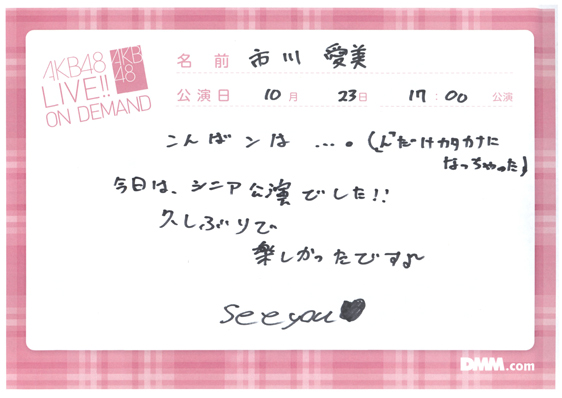 AKB48
LIVE!!
ON DEMAND
AKB
48
名前 市川 愛美
公演日 10月 23日 17:00 公演
こんばンは …。(「ん」だけカタカナに
なっちゃった)
今日は、シニア公演でした!!
久しぶりで
楽しかったですよ〜
see you♥
DMM.com